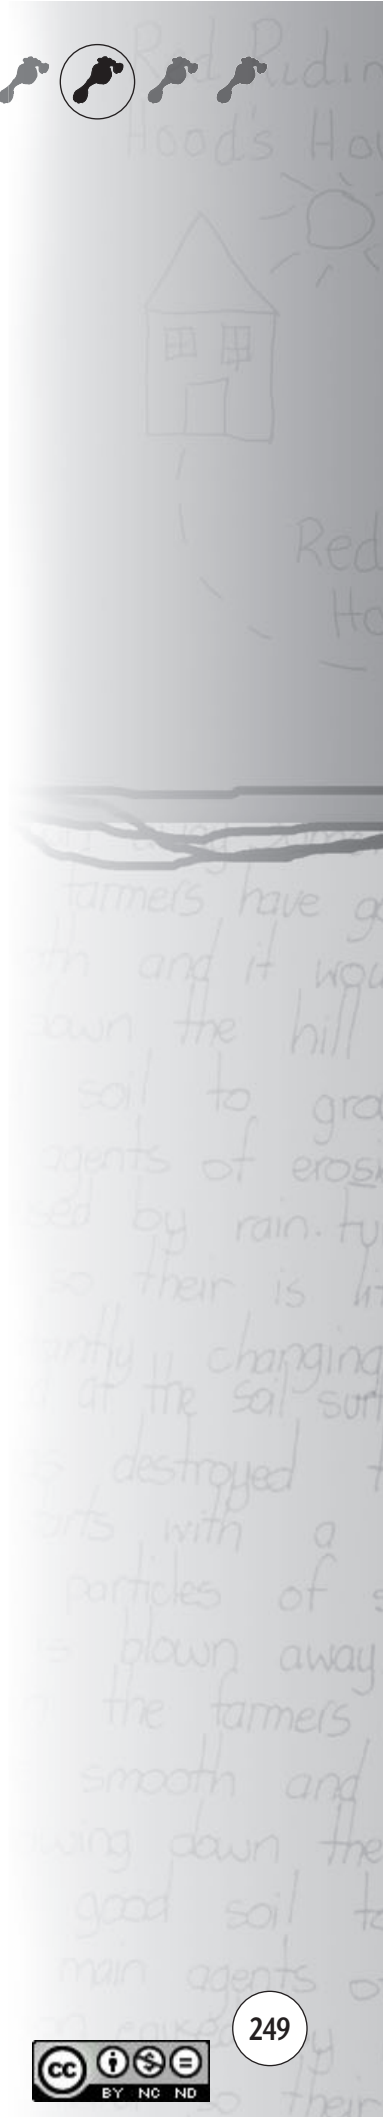 Red Ridin
Hood's Hou
Red
Ho
farmers have go
and it wou
down the hill
soil to gro
agents of erosi
by rain. tu
so their is lit
changing
at the soil surf
destroyed t
with a
particles of s
blown away
the farmers
smooth and
down the
good soil to
main agents o
by
249
cc BY NC ND
so their